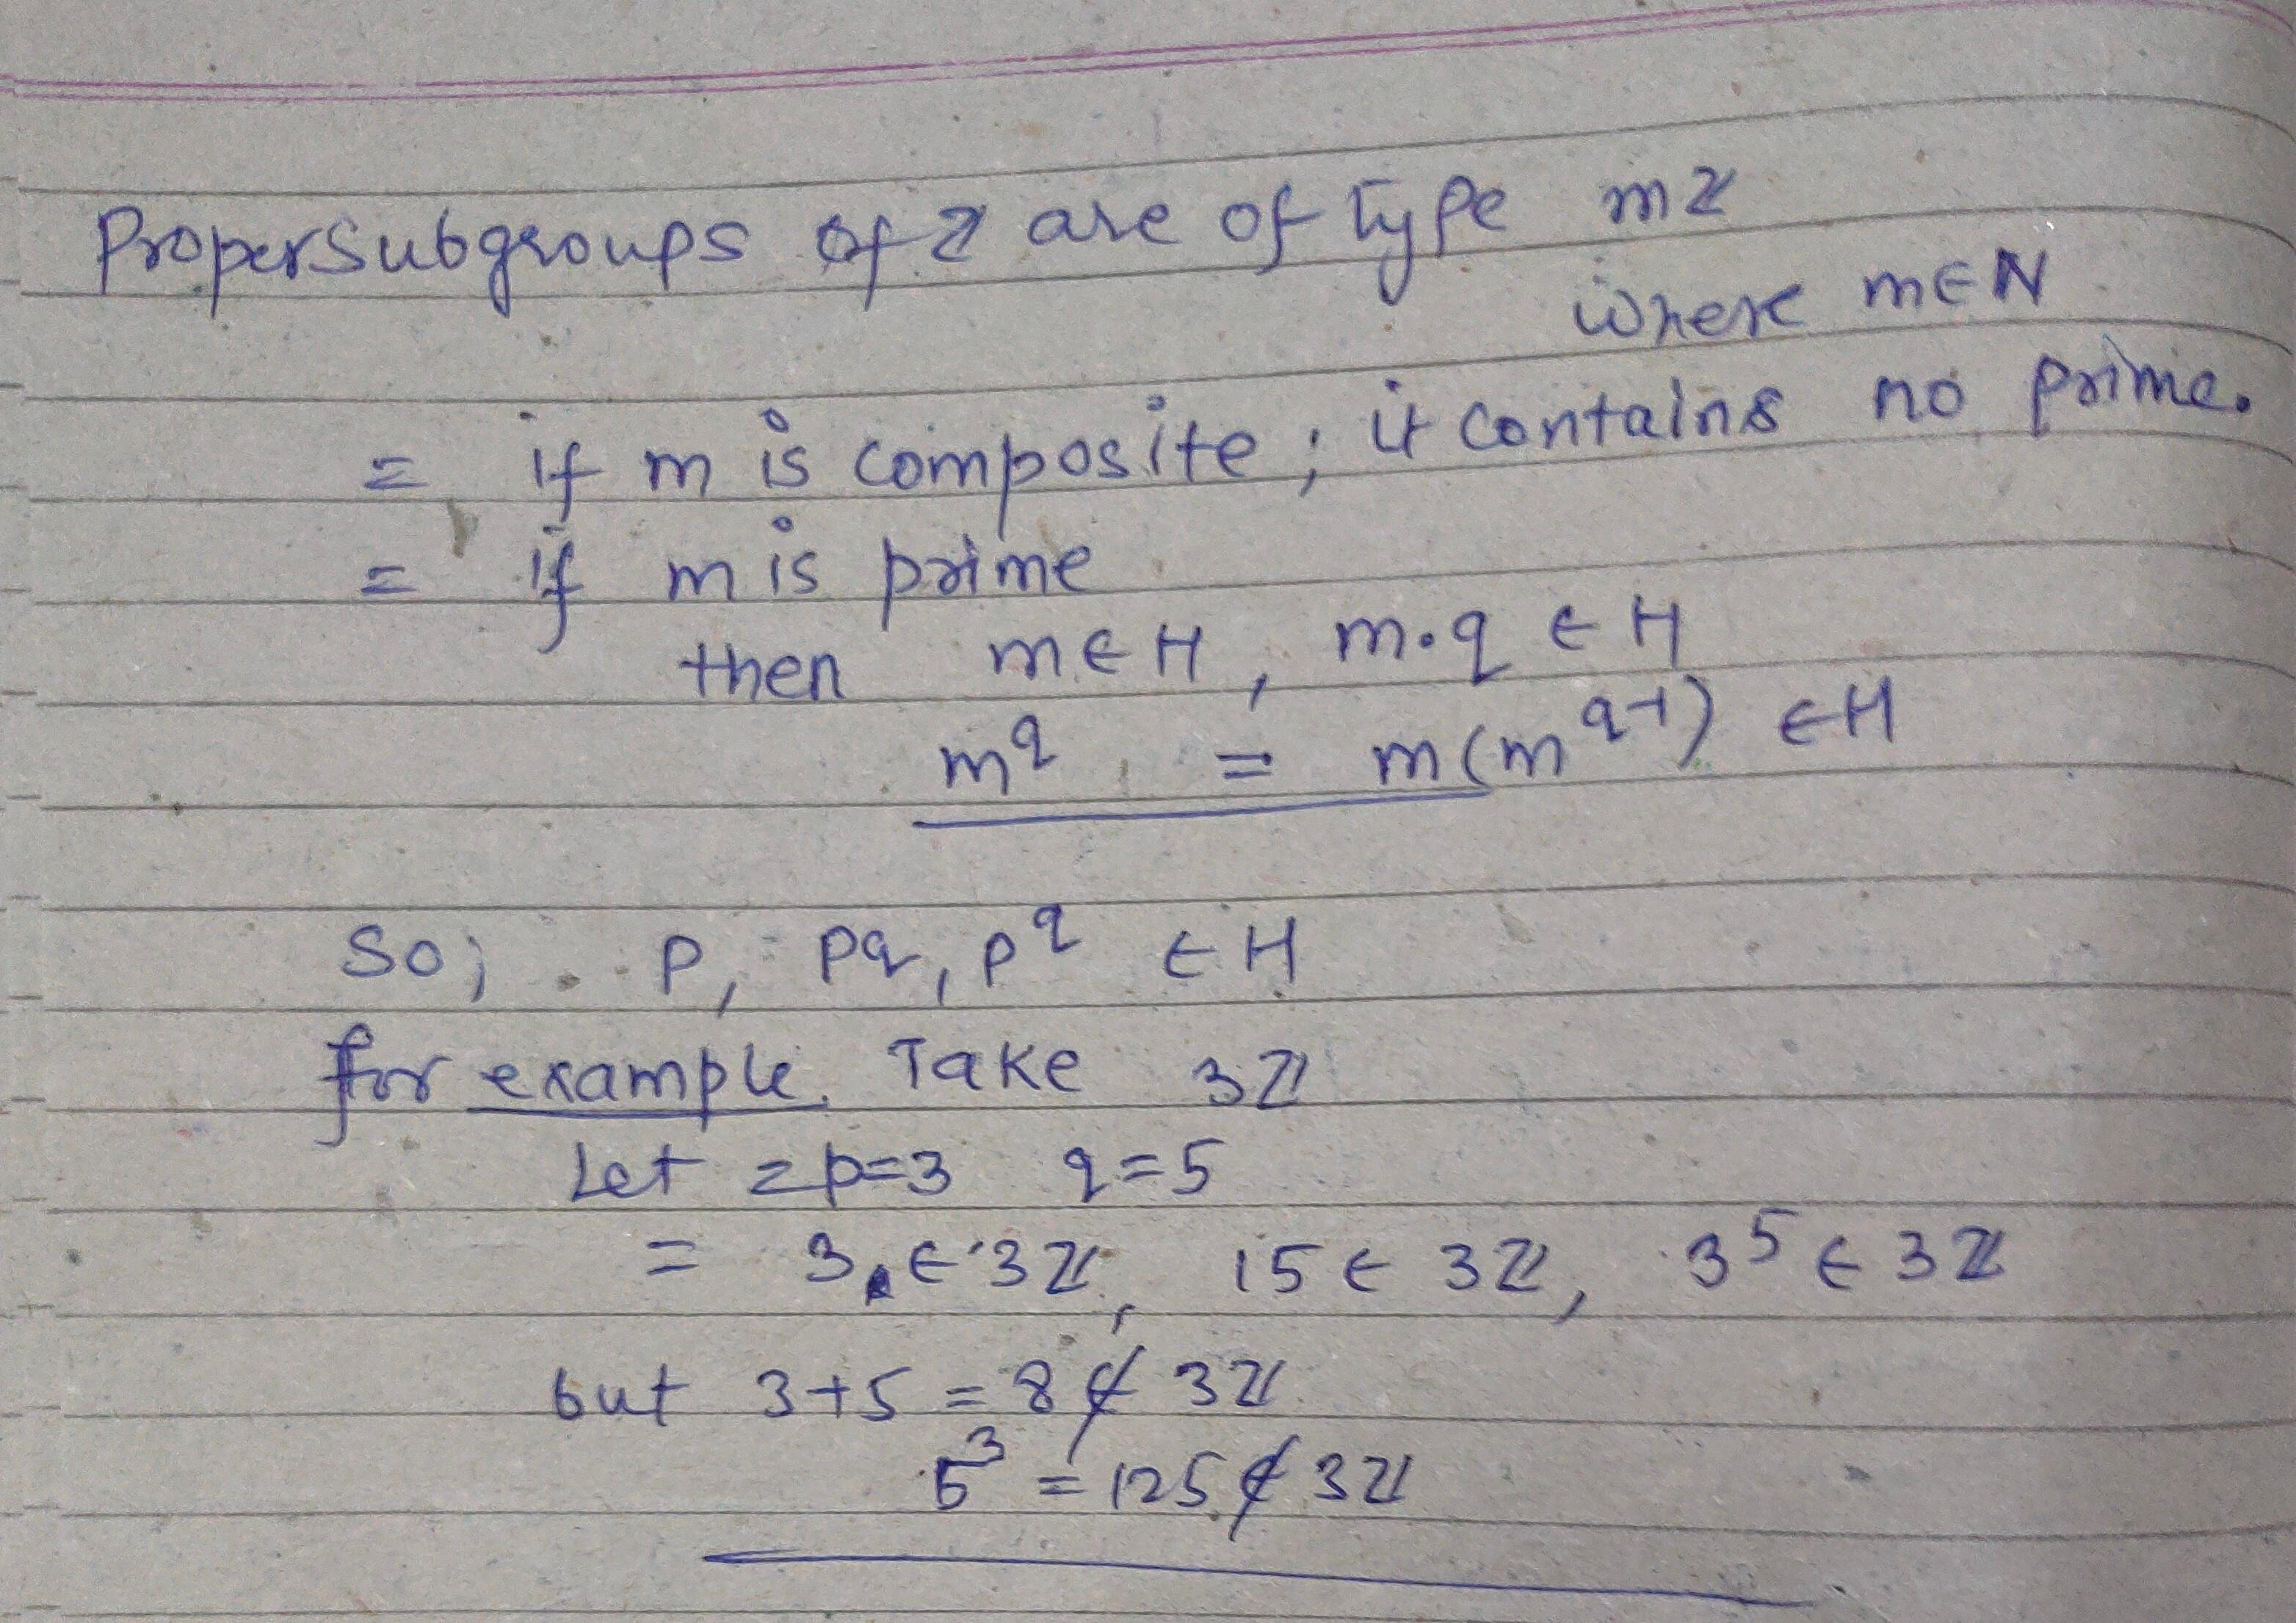 Proper Subgroups of ℤ are of type mℤ
where m∈N
= if m is composite ; it contains no prime.
= if m is prime
then m∈H , m·q ∈ H
m^q = m(m^{q-1}) ∈H
So; p, pq, p^q ∈ H
for example. Take 3ℤ
Let = p=3 q=5
= 3 ∈ 3ℤ, 15 ∈ 3ℤ, 3^5 ∈ 3ℤ
but 3+5 = 8 ∉ 3ℤ
5^3 = 125 ∉ 3ℤ